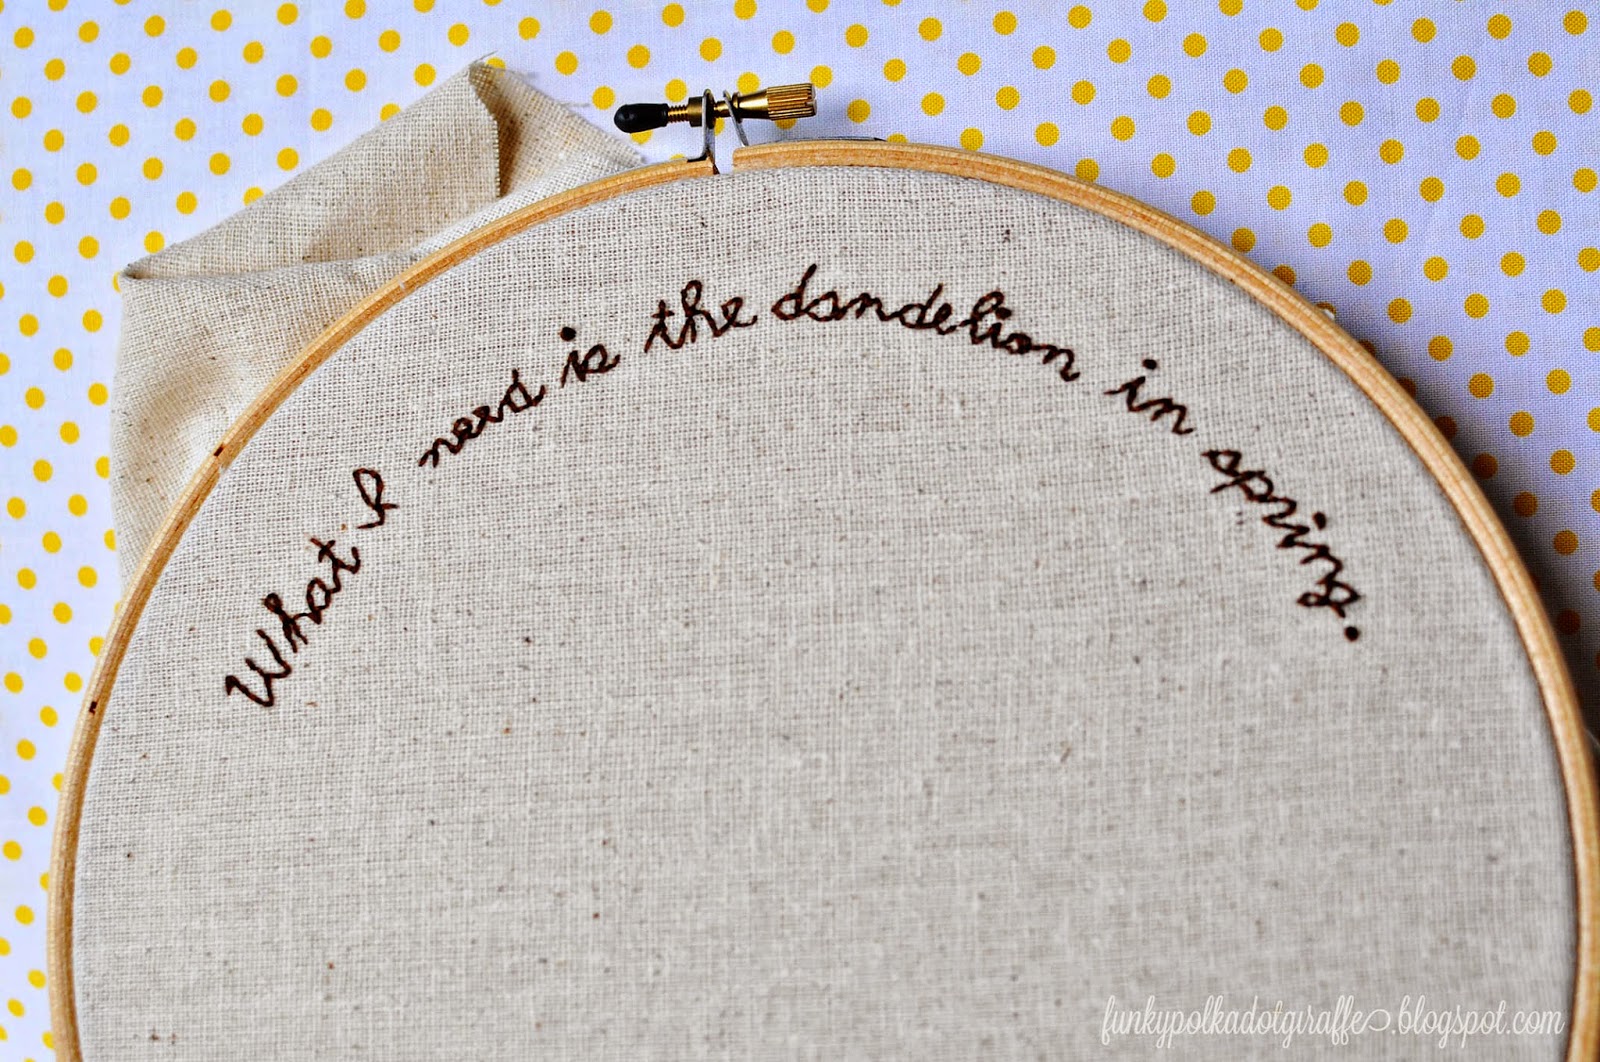 What I need is the dandelion in spring.
funkypolkadotgiraffe.blogspot.com